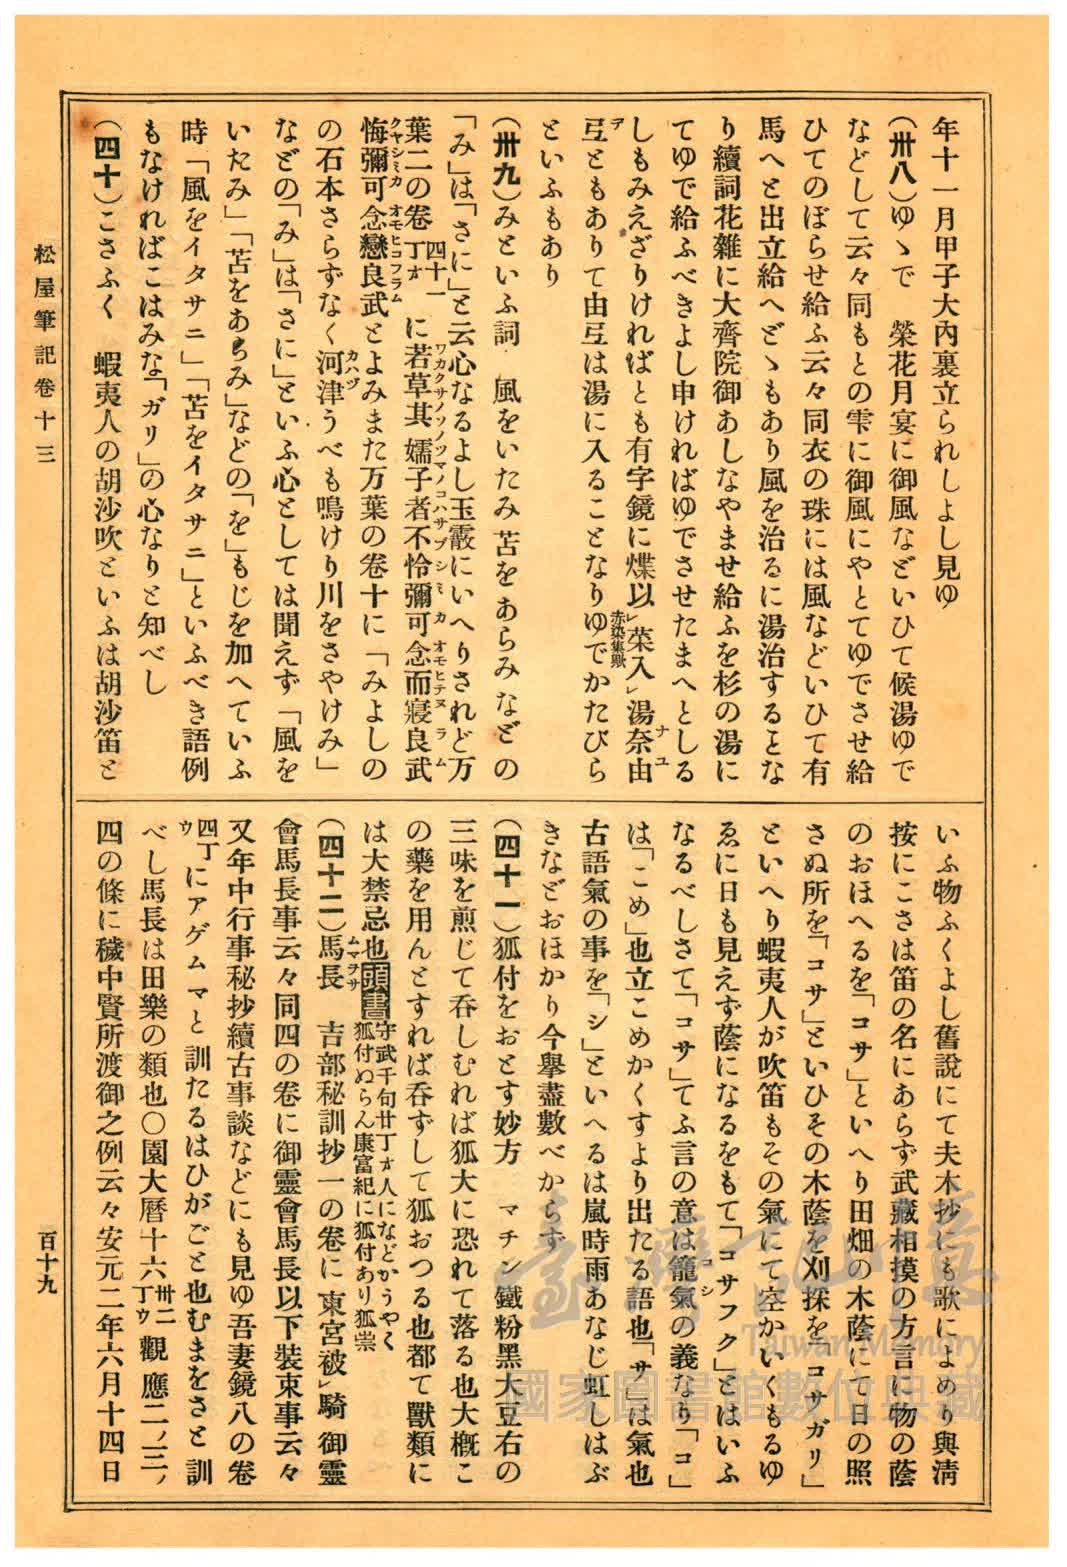 年十一月甲子大內裏立られしよし見ゆ
(卅八)ゆゝで　榮花月宴に御風などいひて候湯ゆで
などして云々同もとの雫に御風にやとてゆでさせ給
ひてのぼらせ給ふ云々同衣の珠には風などいひて有
馬へと出立給へどゝもあり風を治るに湯治することな
り續詞花雜に大齊院御あしなやませ給ふを杉の湯に
てゆで給ふべきよし申ければゆでさせたまへとしる
しもみえざりければとも有字鏡に煠以レ菜入レ湯奈由
弖ともありて由弖は湯に入ることなりゆでかたびら
といふもあり
(卅九)みといふ詞　風をいたみ苫をあらみなどの
「み」は「さに」と云心なるよし玉霰にいへりされど万
葉二の卷四十一丁オに若草其嬬子者不怜彌可念而寢良武
悔彌可念戀良武とよみまた万葉の卷十に「みよしの
の石本さらずなく河津うべも鳴けり川をさやけみ」
などの「み」は「さに」といふ心としては聞えず「風を
いたみ」「苫をあらみ」などの「を」もじを加へていふ
時「風をイタサニ」「苫をイタサニ」といふべき語例
もなければこはみな「ガリ」の心なりと知べし
(四十)こさふく　蝦夷人の胡沙吹といふは胡沙笛と
いふ物ふくよし舊說にて夫木抄にも歌によめり與淸
按にこさは笛の名にあらず武藏相摸の方言に物の蔭
のおほへるを「コサ」といへり田畑の木蔭にて日の照
さぬ所を「コサ」といひその木蔭を刈採を「コサガリ」
といへり蝦夷人が吹笛もその氣にて空かいくもるゆ
ゑに日も見えず蔭になるをもて「コサフク」とはいふ
なるべしさて「コサ」てふ言の意は籠氣の義なり「コ」
は「こめ」也立こめかくすより出たる語也「サ」は氣也
古語氣の事を「シ」といへるは嵐時雨あなじ虹しはぶ
きなどおほかり今擧盡數べからず
(四十一)狐付をおとす妙方　マチン鐵粉黑大豆右の
三味を煎じて呑しむれば狐大に恐れて落る也大槪こ
の藥を用んとすれば呑ずして狐おつる也都て獸類に
は大禁忌也頭書守武千句廿丁オ人になどかうやく狐付ぬらん康富紀に狐付あり狐祟
(四十二)馬長　吉部秘訓抄一の卷に東宮被レ騎御靈
會馬長事云々同四の卷に御靈會馬長以下裝束事云々
又年中行事秘抄續古事談などにも見ゆ吾妻鏡八の卷
四丁ウにアゲムマと訓たるはひがごと也むまをさと訓
べし馬長は田樂の類也〇園大曆十六卅二丁ウ觀應二ノ三ノ
四の條に穢中賢所渡御之例云々安元二年六月十四日
松屋筆記卷十三
百十九
Taiwan Memory
國家圖書館數位典藏